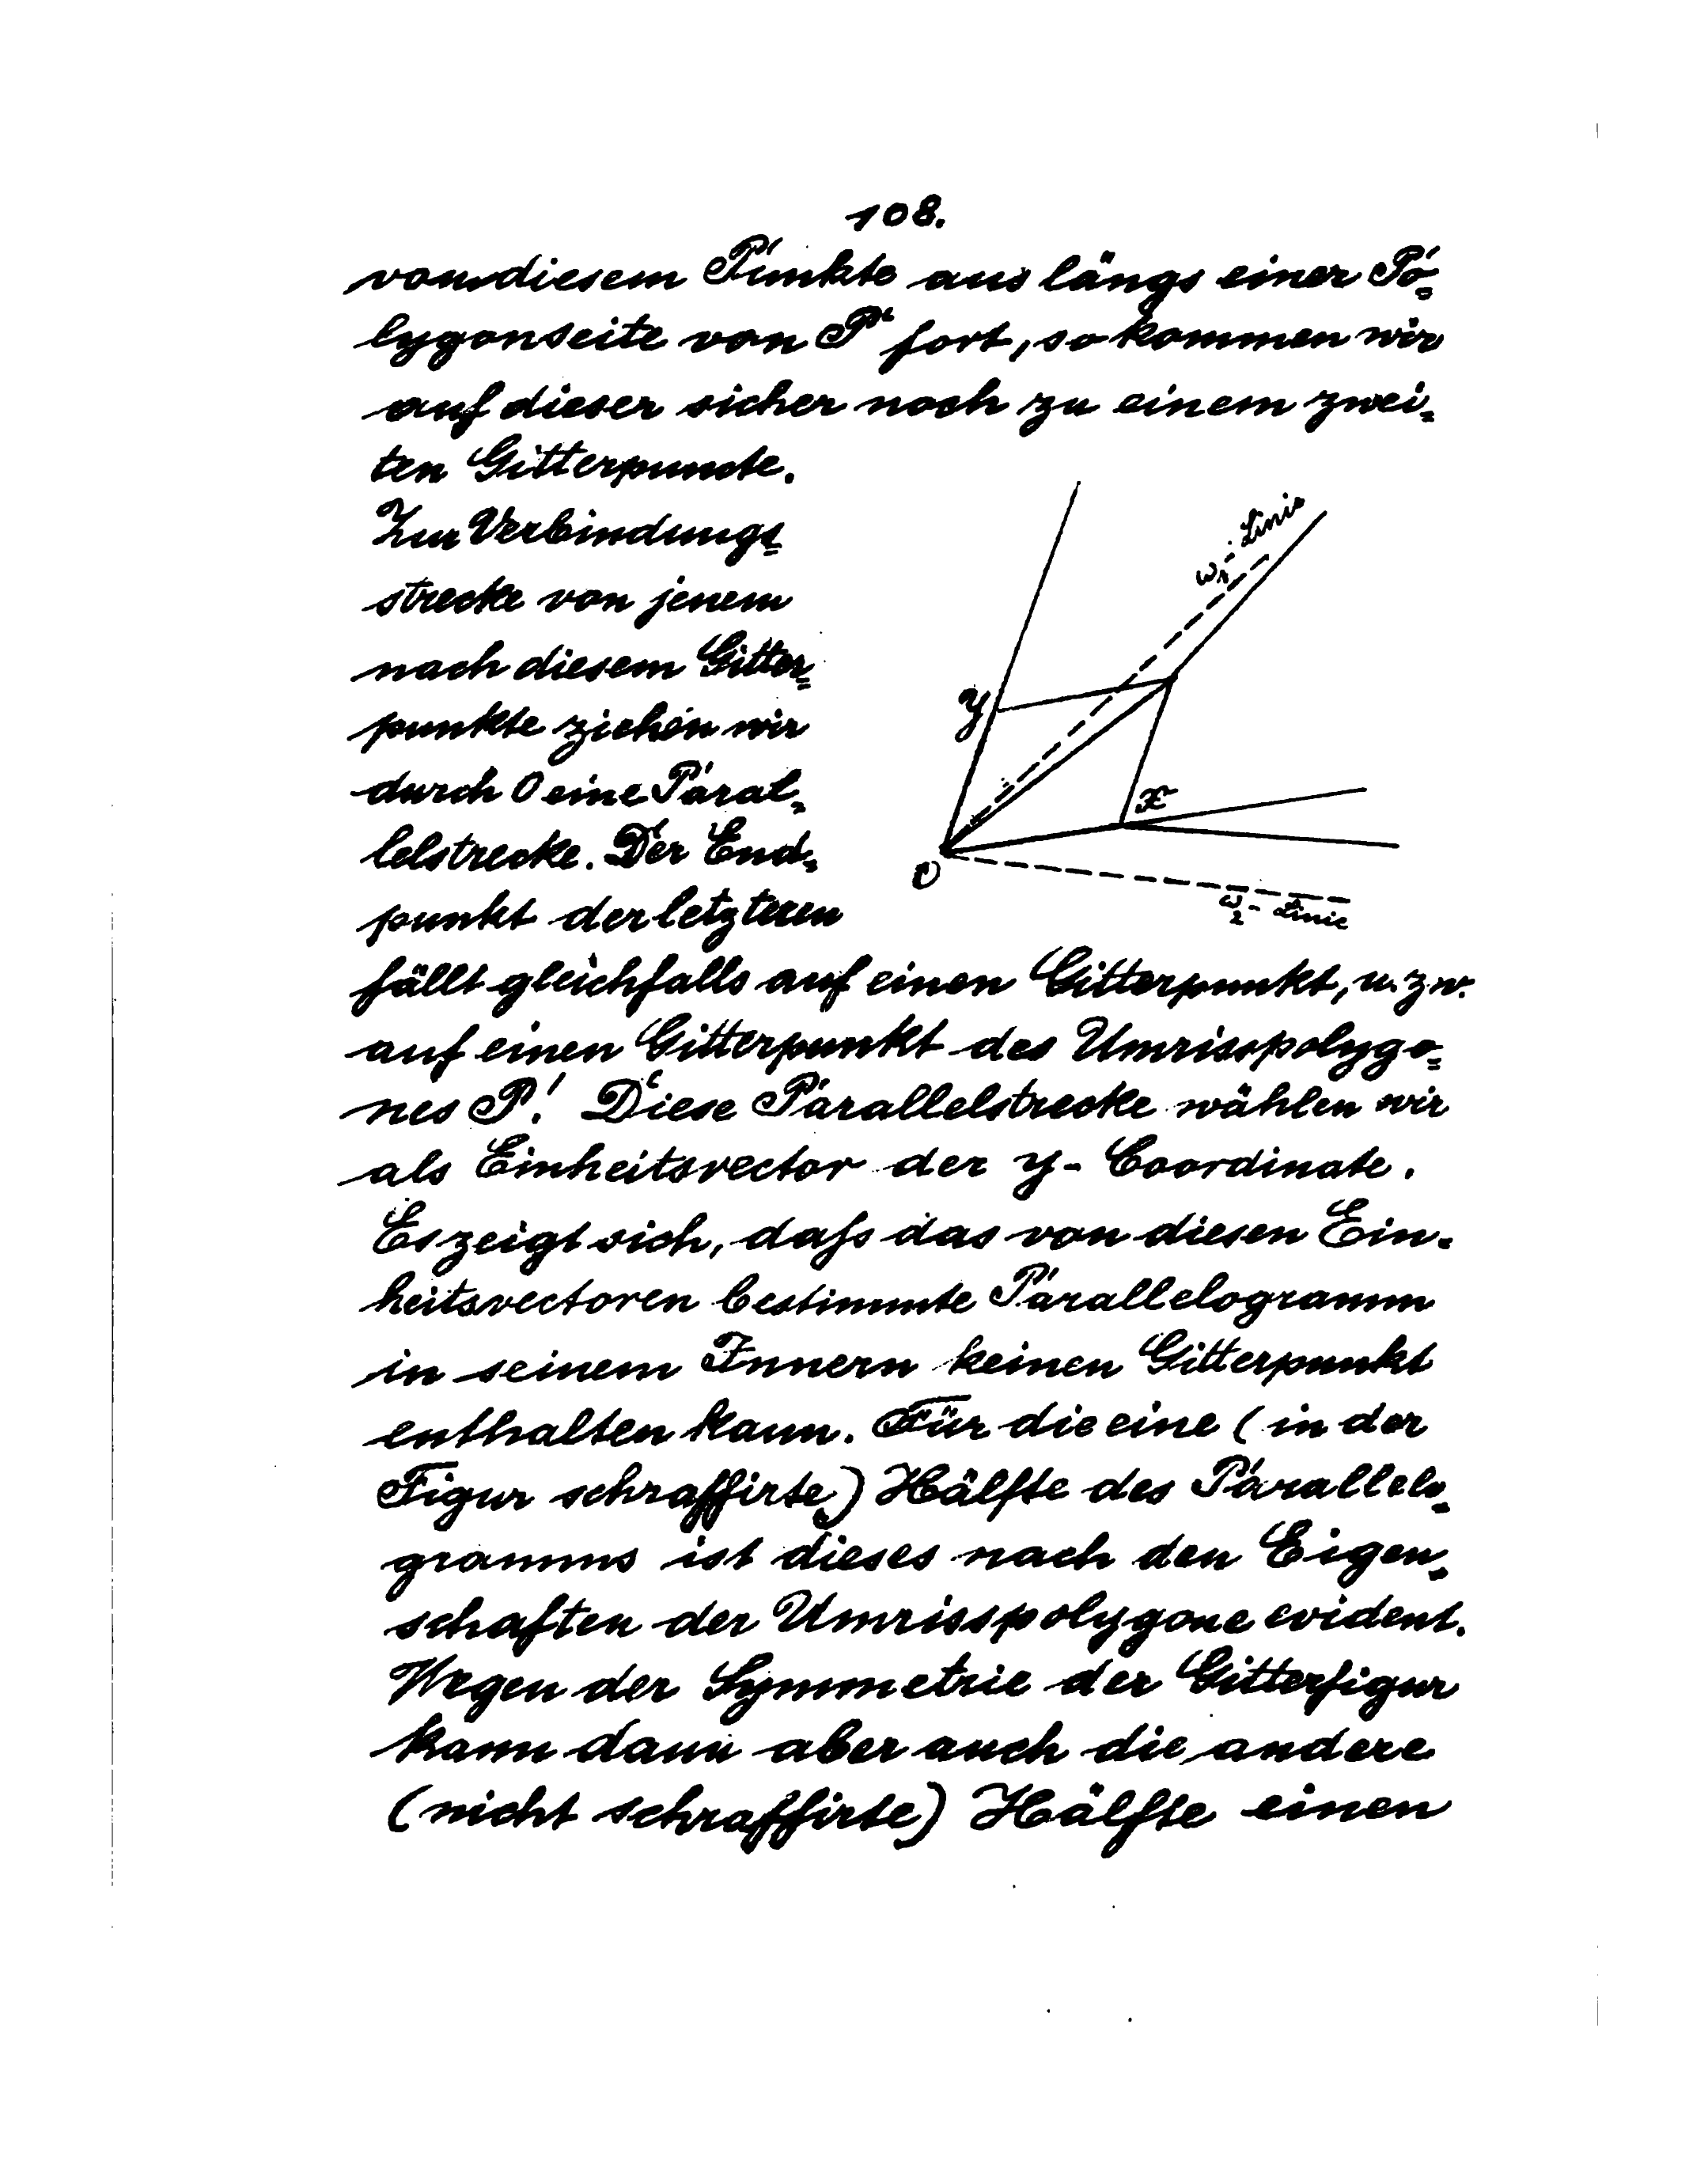 108.
von diesem Punkte aus längs einer Po=
lygonseite von P" fort, so kommen wir
auf dieser sicher noch zu einem zwei=
ten Gitterpuncte.
Zur Verbindungs=
strecke von jenem
nach diesem Gitter=
punkte ziehen wir
durch O eine Paral=
lelstrecke. Der End=
punkt der letzteren
y
ω₁-Linie
x
O
ω₂-Linie
fällt gleichfalls auf einen Gitterpunkt, u. zw.
auf einen Gitterpunkt des Umrisspolygo=
nes P'. Diese Parallelstrecke wählen wir
als Einheitsvector der y-Coordinate.
Es zeigt sich, daſs das von diesen Ein=
heitsvectoren bestimmte Parallelogramm
in seinem Innern keinen Gitterpunkt
enthalten kann. Für die eine (in der
Figur schraffirte) Hälfte des Parallelo=
gramms ist dieses nach den Eigen=
schaften der Umrisspolygone evident.
Wegen der Symmetrie der Gitterfigur
kann dann aber auch die andere
(nicht schraffirte) Hälfte einen